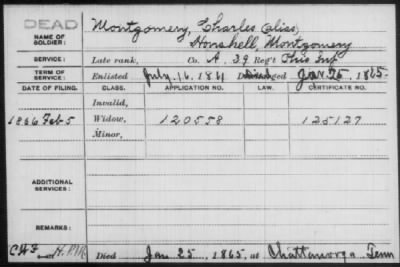 DEAD
NAME OF SOLDIER: Montgomery, Charles (alias)
Honshell, Montgomery
SERVICE: Late rank, Co. A, 39 Reg't Ohio Inf
TERM OF SERVICE: Enlisted July 16, 1861 Died Jan 25, 1865.
DATE OF FILING. CLASS. APPLICATION NO. LAW. CERTIFICATE NO.
Invalid,
1866 Feb 5 Widow, 120558 125127
Minor,
ADDITIONAL SERVICES:
REMARKS:
Died Jan 25, 1865, at Chattanooga Tenn